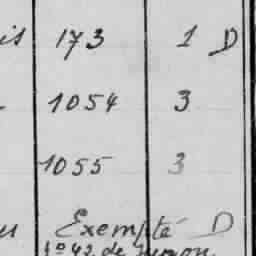 is 173 1 D
1054 3
1055 3
Exempté D
1º 42 de